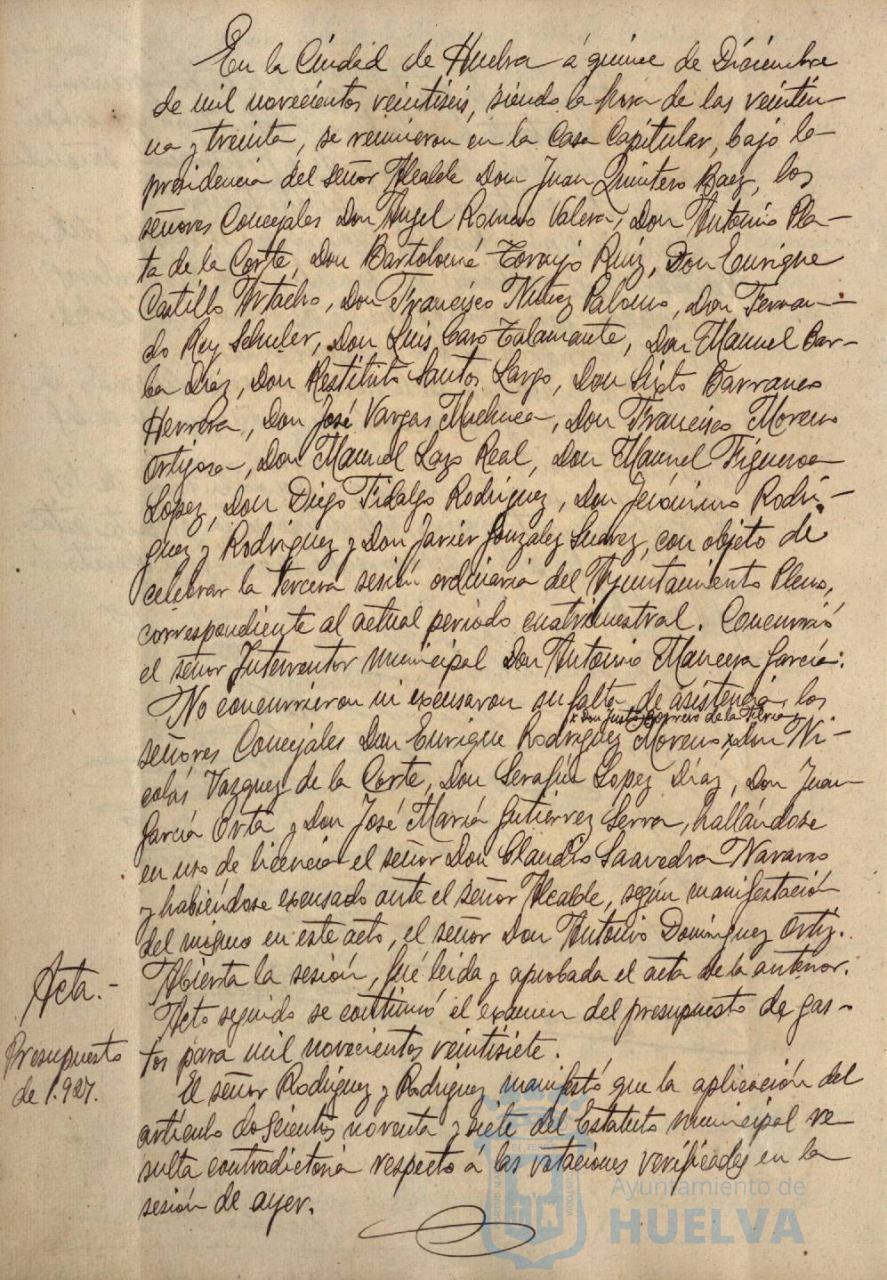 En la Ciudad de Huelva á quince de Diciembre
de mil novecientos veintiseis, siendo la hora de las veintiu-
na y treinta, se reunieron en la Casa Capitular, bajo la
presidencia del señor Alcalde Don Juan Quintero Baez, los
señores Concejales Don Angel Romero Valera, Don Antonio Pla-
ta de la Corte, Don Bartolomé Toronjo Ruiz, Don Enrique
Castillo Machio, Don Francisco Nuñez Palomo, Don Fernan-
do Rey Schuler, Don Luis Caro Talamante, Don Manuel Bar-
ba Diaz, Don Restituto Santos Largo, Don Sixto Barranco
Herrera, Don José Vargas Machuca, Don Francisco Moreno
Ortigosa, Don Manuel Lazo Real, Don Manuel Figueroa
Lopez, Don Diego Fidalgo Rodriguez, Don Jerónimo Rodri-
guez y Rodriguez y Don Javier Gonzalez Suarez, con objeto de
celebrar la tercera sesión ordinaria del Ayuntamiento Pleno,
correspondiente al actual periodo cuatrimestral. Concurrió
el señor Interventor municipal Don Antonio Mancera García.
No concurrieron ni excusaron su falta de asistencia, los
x Don Justo Borrero de la Feria x
señores Concejales Don Enrique Rodriguez Moreno x Don Ni-
colás Vazquez de la Corte, Don Serafín Lopez Díaz, Don Juan
García Orta y Don José María Gutierrez Serra, hallándose
en uso de licencia el señor Don Claudio Saavedra Navarro
y habiéndose excusado ante el señor Alcalde, según manifestación
del mismo en este acto, el señor Don Antonio Domínguez Ortiz.
Acta.-
Abierta la sesión, fué leida y aprobada el acta de la anterior.
Presupuesto
de 1.927.
Acto seguido se continuó el examen del presupuesto de gas-
tos para mil novecientos veintisiete.
El señor Rodriguez y Rodriguez manifestó que la aplicación del
artículo doscientos noventa y siete del Estatuto municipal re-
sulta contradictoria respecto á las votaciones verificadas en la
sesión de ayer.
Ayuntamiento de
HUELVA